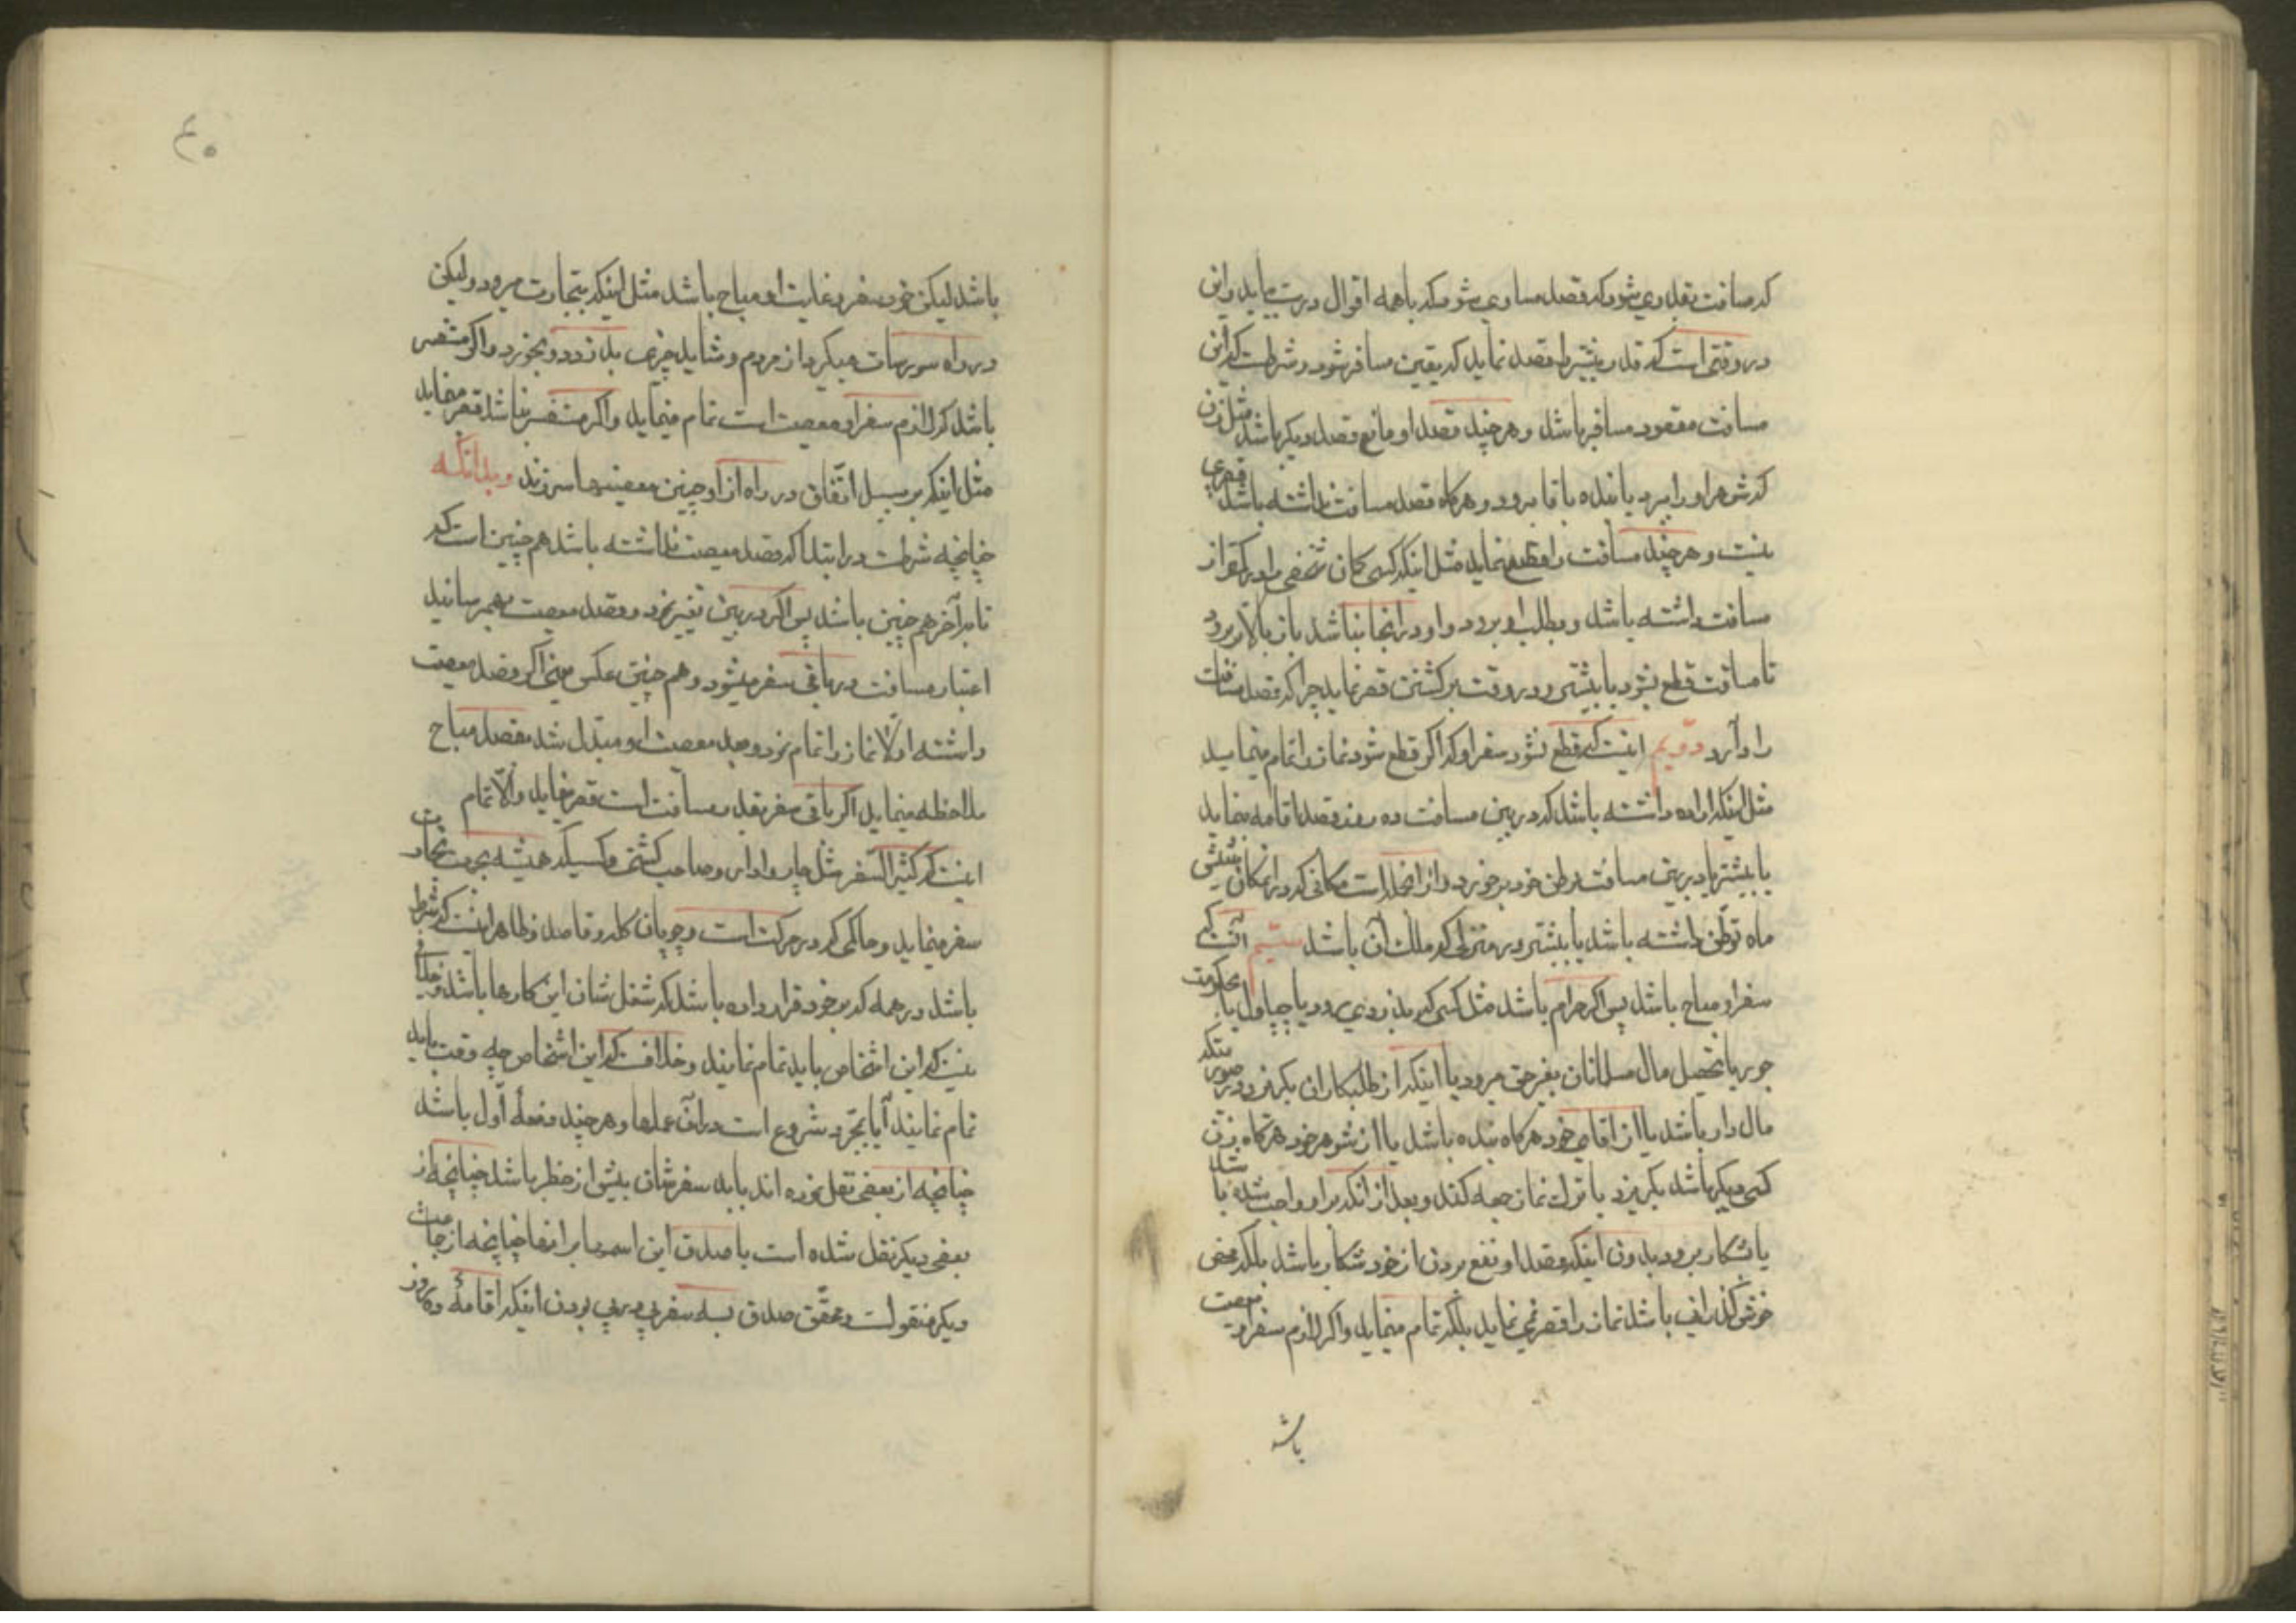 که مسافت بقدری شود که قصد مساوی شود که با همه اقوال درست بیاید و این
در وقتی است که قدر بیشتر را قصد نماید که بیقین مسافر شود و شرطست که این
مسافت مقصود مسافر باشد و هر چند قصد او مانع قصد دیگر باشد مثل زن
که شوهر او را ببرد یا بنده با آقا برود و هرگاه قصد مسافت نداشته باشد قصری
نیست و هر چند مسافت را قطع نماید مثل اینکه کسی گمان شخصی را در کمتر از
مسافت داشته باشد و بطلب او برود و او در آنجا نباشد باز بالاتر برود
تا مسافت قطع شود یا بیشتر و در وقت برگشتن قصر نماید چرا که قصد مسافت
را دارد دویم اینست که قطع نشود سفر او که اگر قطع شود نماز را تمام مینماید
مثل اینکه اراده داشته باشد که در بین مسافت ده روز قصد اقامه بنماید
یا بیشتر یا در بین مسافت بوطن خود برخورد و از آنجمله است مکانی که در آنمکان شش
ماه توطن داشته باشد یا بیشتر در منزلی که ملک آن باشد سیّم آنست که
سفر او مباح باشد پس اگر حرام باشد مثل کسی که بدزدی رود یا چپاول یا بحکومت
جور یا تحصیل مال مسلمانان بغیر حق برود یا اینکه از طلبکاران بگریزد در صورتیکه
مال دار باشد یا از اقای خود هرگاه بنده باشد یا از شوهر خود هرگاه زن
کسی دیگر باشد بگریزد یا ترک نماز جمعه کند و بعد از آنکه بر او واجب شده باشد
یا بشکار برود بدون اینکه قصد او نفع بردن از خود شکار باشد بلکه محض
خوش گذرانی باشد نماز را قصر نمی نماید بلکه تمام مینماید و اگر لازم سفر او معصیت
باشد
۴۰
باشد لیکن خود سفر و غایت او مباح باشد مثل اینکه بتجارت میرود و لیکن
در راه سورسات میگیرد از مردم و شاید چیزی بدزدد و بخورد و اگر منحصر
باشد که لازم سفر او معصیت است تمام مینماید و اگر منحصر نباشد قصر مینماید
مثل اینکه بر سبیل اتّفاق در راه از او چنین معصیتها سر زند و بدانکه
چنانچه شرطست در ابتدا که قصد معصیت نداشته باشد هم چنین است که
تا بآخر هم چنین باشد پس اگر در بین تغییر نمود و قصد معصیت بهم رسانید
اعتبار مسافت در باقی سفر میشود و هم چنین عکس یعنی اگر قصد معصیت
داشته اولا نماز را تمام نمود و بعد معصیت او مبدّل شد بقصد مباح
ملاحظه مینماید اگر باقی سفر بقدر مسافت است قصر مینماید و الّا تمام
اینست که کثیر السّفر مثل چاروادار و صاحب کشتی و کسیکه همیشه بجهت تجارت
سفر مینماید و حاکمی که در حرکت است و چوپان گله و قاصد و ظاهر اینست که شرط
باشد در همه که بر خود قرار داده باشد که شغل شان این کارها باشد و خلافی
نیست که این اشخاص باید تمام نمایند و خلافست که این اشخاص چه وقت باید
تمام نمایند آیا بمجرد شروع است در آن عملها و هر چند دفعهٔ اوّل باشد
چنانچه از بعضی نقل نموده اند باید سفرشان بیش از حضر باشد چنانچه از
بعضی دیگر نقل شده است یا صدق این اسمها بر اینها چنانچه از جماعت
دیگر منقولست و تحقّق صدق بسه سفر پی در پی بودن اینکه اقامهٔ ده روز